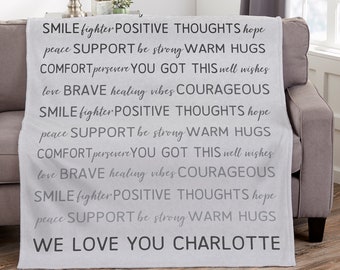 SMILE fighter POSITIVE THOUGHTS hope
peace SUPPORT be strong WARM HUGS
COMFORT persevere YOU GOT THIS well wishes
love BRAVE healing vibes COURAGEOUS
SMILE fighter POSITIVE THOUGHTS hope
peace SUPPORT be strong WARM HUGS
COMFORT persevere YOU GOT THIS well wishes
love BRAVE healing vibes COURAGEOUS
SMILE fighter POSITIVE THOUGHTS hope
peace SUPPORT be strong WARM HUGS
WE LOVE YOU CHARLOTTE